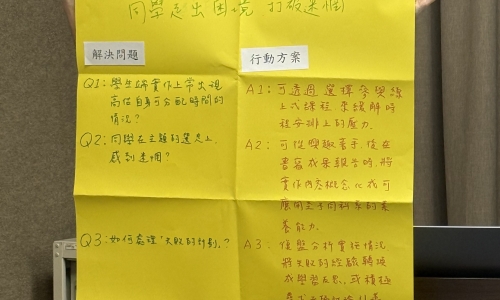 同學走出困境 打破迷惘
解決問題
Q1：學生端實作上常出現
高估自身可分配時間的
情況？
Q2：同學在主題的選定上
感到迷惘？
Q3：如何處理「失敗的計劃」？
行動方案
A1：可透過選擇參與線
上式課程，來緩解時
程安排上的壓力。
A2：可從興趣著手，後在
書寫成果報告時，將
實作內容概念化成可
應用之不同科系的素
養能力。
A3：復盤分析實作情況
將失敗的經驗轉換
成學習反思，或積極